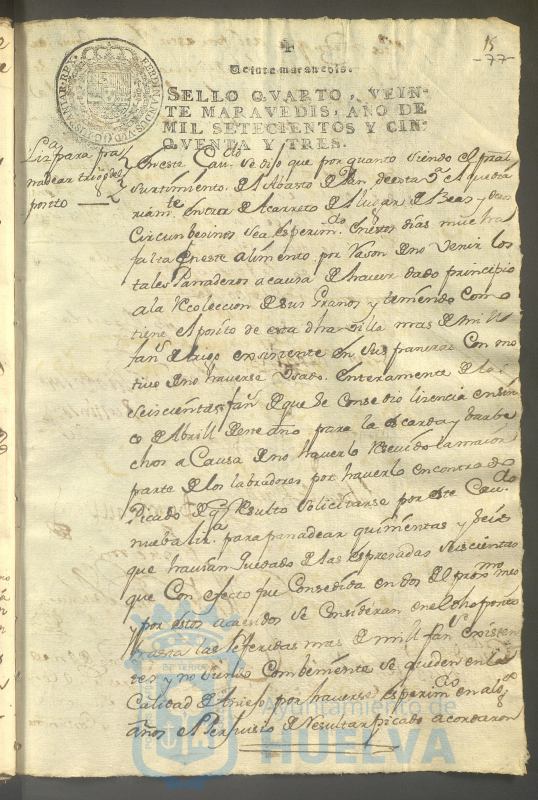 15
-77-
Veinte maravedis.
SELLO QVARTO, VEIN-
TE MARAVEDIS, AÑO DE
MIL SETECIENTOS Y CIN-
QVENTA Y TRES.
Liz.a para pa
nadear trigo del
posito
En este Cau.do se dijo que por quanto siendo el pral
surtimiento del Abasto de Pan de esta
entra de Acarreto del lugar de Beas y otros
Circunbecinos sea esperim.do en estos dias mucha
falta de este alimento por rason de no venir los
tales Panaderos a causa de haver dado principio
a la Recoleccion de sus Granos y teniendo como
tiene el posito de esta dha villa mas de mill
fan.s de trigo existente en sus paneras con mo
tivo de no haverse usado enteramente de las
seiscientas fan.s de que se consedio licencia en sin
co de Abrill de este año para la escarda y barbe
chos a Causa de no haverlo Resevido la maior
parte de los labradores por haverlo encontrado
Picado de q resulto solicitarse por este Cau.do
nueba liz.a para panadear quinientas y seis
que havian quedado de las espresadas seiscientas
que con efecto fue consedida en dos del prox.mo mes
y por estos acaesidos se consideran en el dho posito
hasta las referidas mas de mill fan.s existen
tes y no siendo combeniente se queden en la
Calidad de Añejo por haverse esperim.do en a los
años el Perjuisio de Resultar picado acordaron
Ayuntamiento de
HUELVA